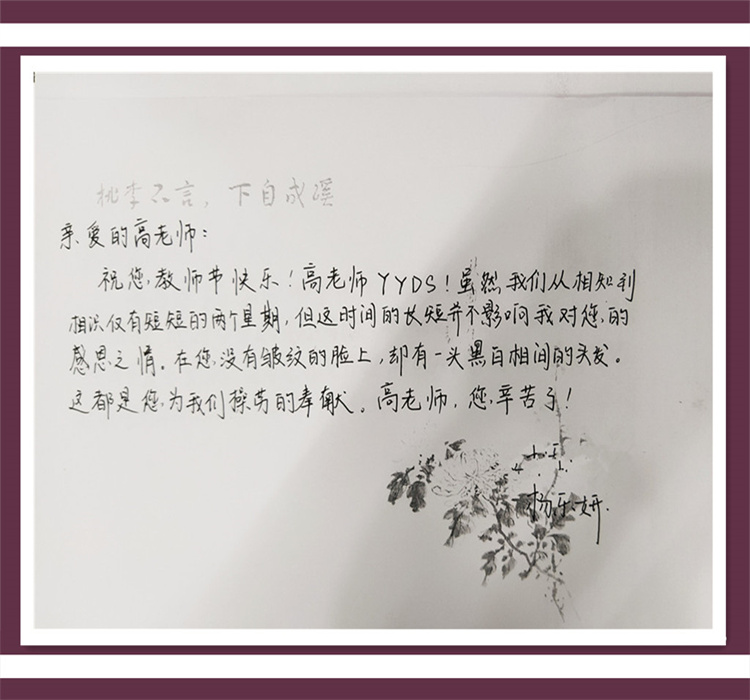 桃李不言，下自成蹊
亲爱的高老师：
祝您教师节快乐！高老师YYDS！虽然我们从相知到
相识仅有短短的两个星期，但这时间的长短并不影响我对您的
感恩之情。在您没有皱纹的脸上，却有一头黑白相间的头发。
这都是您为我们操劳的奉献。高老师，您辛苦了！
杨乐妍